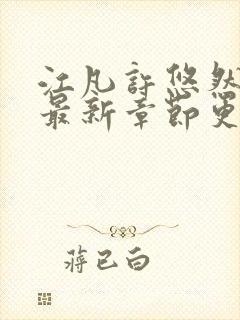 江凡许悠然
最新章节更
蒋已白